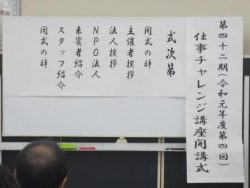 第四十二期(令和元年度第四回)
仕事チャレンジ講座開講式
式次第
開式の辞
主催者挨拶
法人挨拶
NPO法人
来賓者紹介
スタッフ紹介
閉式の辞